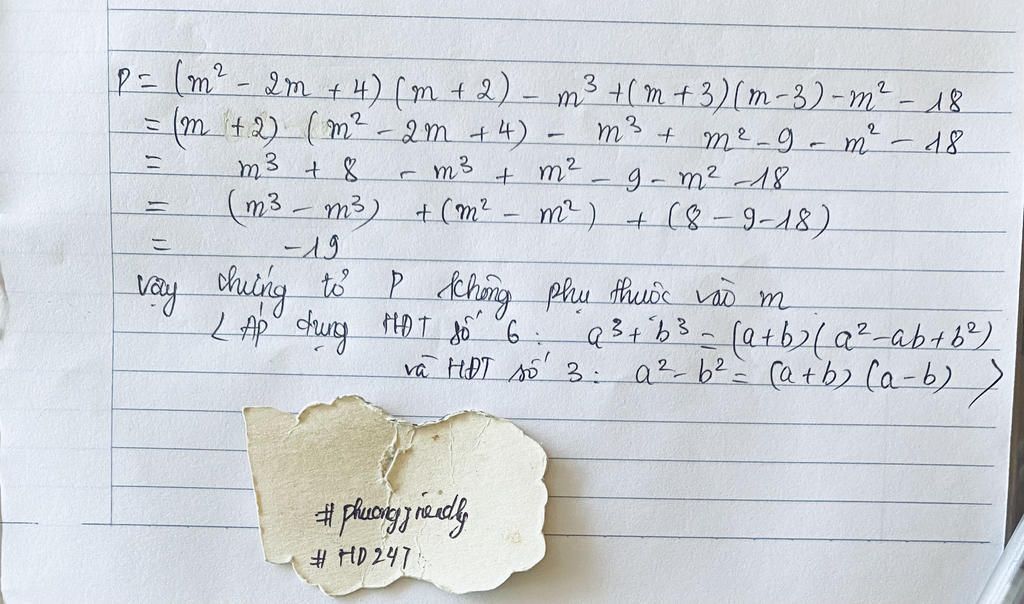 P = (m² - 2m + 4) (m + 2) - m³ + (m + 3)(m - 3) - m² - 18
= (m + 2) (m² - 2m + 4) - m³ + m² - 9 - m² - 18
= m³ + 8 - m³ + m² - 9 - m² - 18
= (m³ - m³) + (m² - m²) + (8 - 9 - 18)
= -19
vậy chứng tỏ P không phụ thuộc vào m
< Áp dụng HĐT số 6 : a³ + b³ = (a+b)(a² - ab + b²)
và HĐT số 3 : a² - b² = (a+b) (a-b) >
# HD247